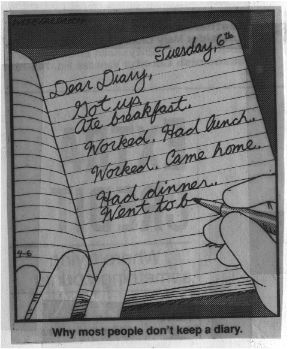 Tuesday, 6th
Dear Diary,
Got up.
Ate breakfast.
Worked. Had lunch.
Worked. Came home.
Had dinner.
Went to b
4-6
Why most people don't keep a diary.